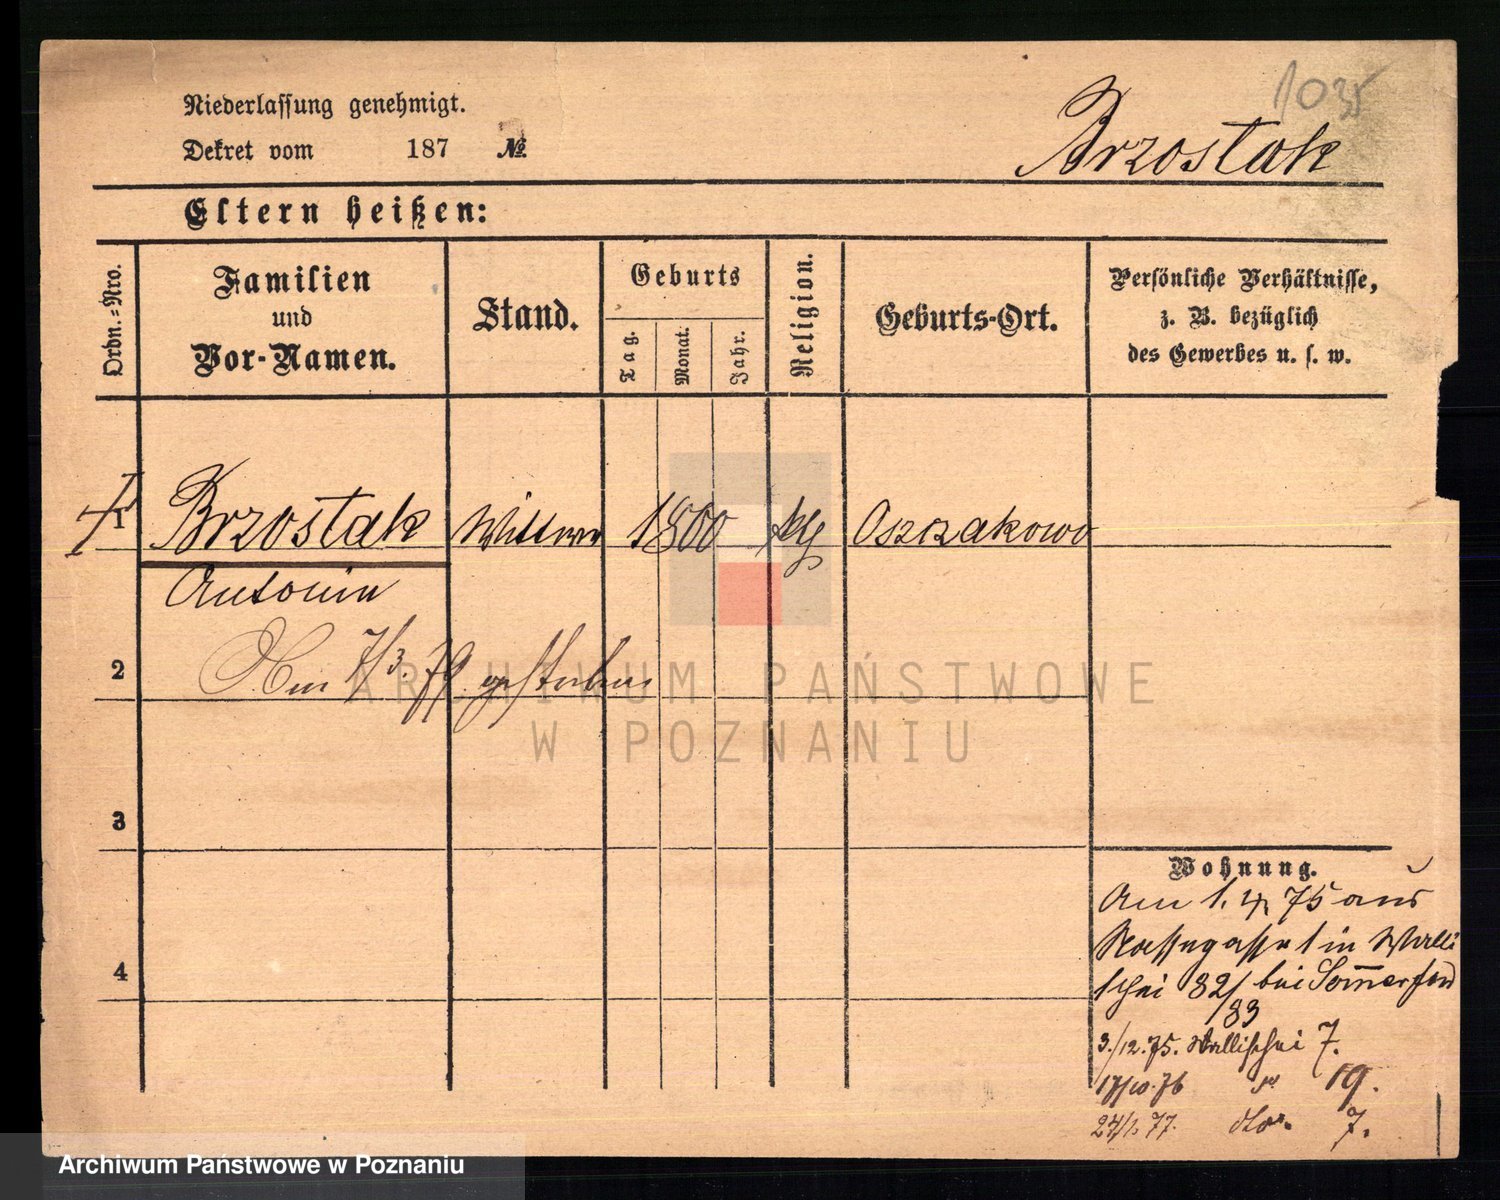 1035
Niederlassung genehmigt.
Dekret vom 187 №
Brzostak
Eltern heißen:
Ordn.-Nro.
Familien
und
Vor-Namen.
Stand.
Geburts
Tag.
Monat.
Jahr.
Religion.
Geburts-Ort.
Persönliche Verhältnisse,
z. B. bezüglich
des Gewerbes u. s. w.
1 Brzostak Wittwe 1800 kth Oszakowo
Antonin
2 Am 7/3. 79 gestorben
ARCHIWUM PAŃSTWOWE
W POZNANIU
3
Wohnung.
Am 1. 4. 75 aus
Nassegasse 1 in Walli
4
schei 82/ bei Somerfeld
83
3./12. 75. Wallischei 7.
17/10. 76 19.
24/1. 77. dto. 7.
Archiwum Państwowe w Poznaniu